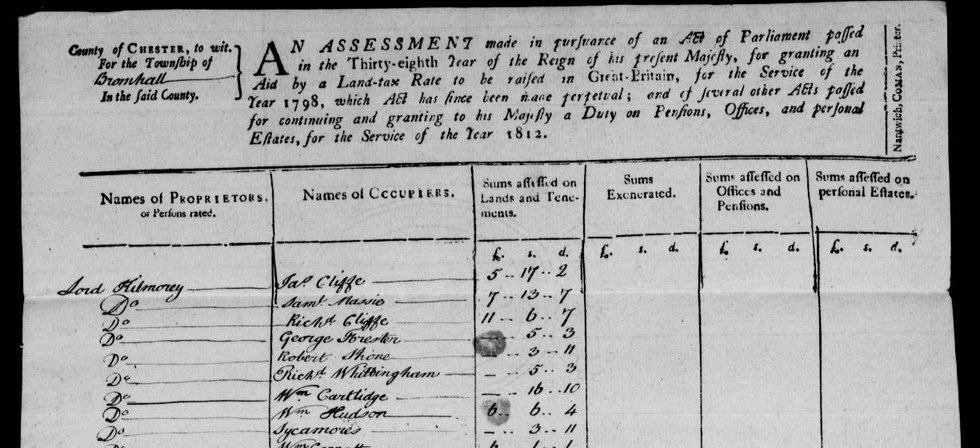 County of CHESTER, to wit.
For the Township of
Bromhall
In the said County.
AN ASSESSMENT made in pursuance of an Act of Parliament passed
in the Thirty-eighth Year of the Reign of his present Majesty, for granting an
Aid by a Land-tax Rate to be raised in Great-Britain, for the Service of the
Year 1798, which Act has since been made perpetual; and of several other Acts passed
for continuing and granting to his Majesty a Duty on Pensions, Offices, and personal
Estates, for the Service of the Year 1812.
Nantwich, COMAS, Printer.
Names of PROPRIETORS, or Persons rated. Names of OCCUPIERS. Sums assessed on Lands and Tenements. Sums Exenerated. Sums assessed on Offices and Pensions. Sums assessed on personal Estates.
£. s. d. £. s. d. £. s. d. £. s. d.
Lord Kilmorey Jas. Cliffe 5 .. 17 .. 2
Do Saml. Massie 7 .. 13 .. 7
Do Richd. Cliffe 11 .. 6 .. 7
Do George Forester 5 .. 3
Do Robert Shone 3 .. 11
Do Richd. Whittingham — .. 5 .. 3
Do Wm Cartlidge — .. 16 .. 10
Do Wm Hudson 6 .. 6 .. 4
Do Sycamores — .. 3 .. 11
Do